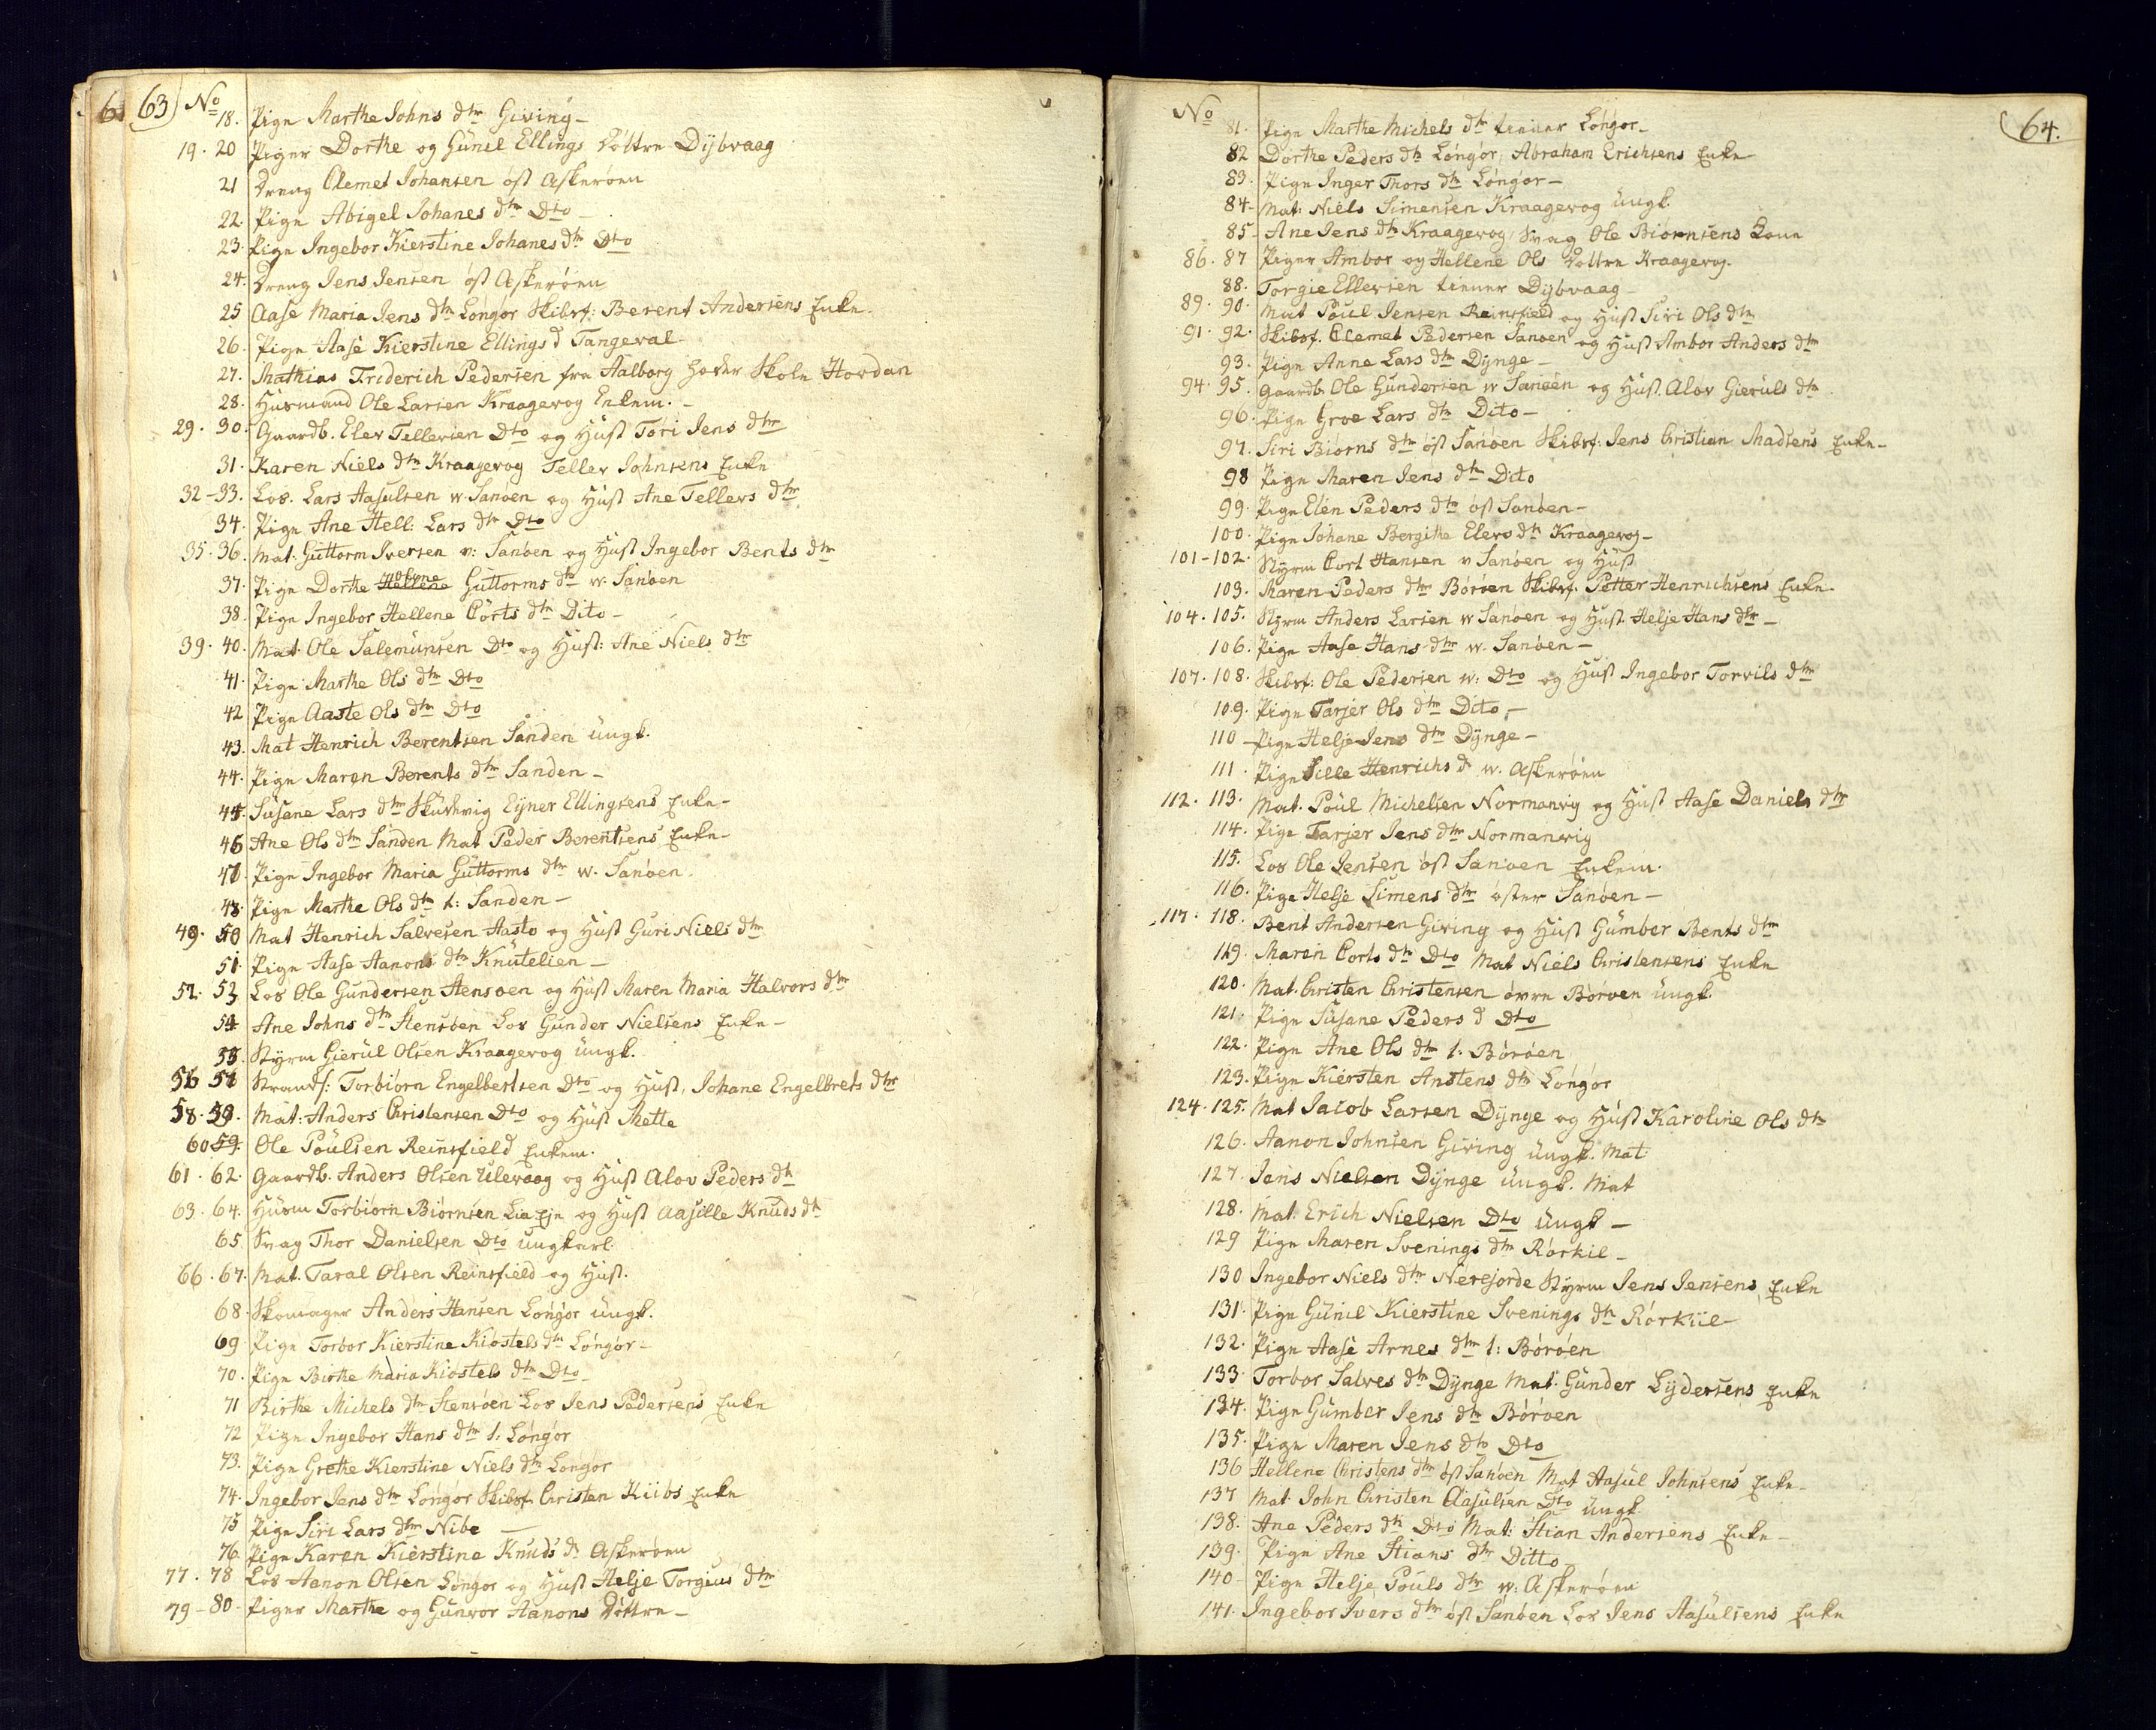 6 63 No
18. Pige Marthe Johns dtr Giving
19. 20 Piger Dorthe og Gunil Ellings Döttre Dijbvaag
21 Dreng Clemet Johansen öst Askeröen
22. Pige Abigel Johanes dtr Dto
23. Pige Ingebor Kierstine Johanes dtr Dto
24. Dreng Jens Jensen öst Askeröen
25 Aase Maria Jens dtr Löngör Skibsf: Berent Andersens Enke.
26. Pige Aase Kierstine Ellings d Tangeval
27. Mathias Friderich Pedersen fra Aalborg Skole
28. Husmand Ole Larsen Kraagevog Enkem.
29. 30. Gaardb. Elev Tellevsen Dto og Hust Tori Jens dtr
31. Karen Niels dtr Kraagevog Tellev Johnsens Enke
32-33. Los. Lars Aasulsen w. Sanöen og Hust Ane Tellevs dtr
34. Pige Ane Hell. Lars dtr Dto
35. 36. Mat: Guttorm Iversen v: Sanöen og Hust Ingebor Bents dtr
37. Pige Dorthe Hellene Guttorms dtr w. Sanöen
38. Pige Ingebor Hellene Corts dtr Dito
39. 40. Mat Ole Salemunsen Dto og Hust: Ane Niels dtr
41. Pige Marthe Ols dtr Dto
42 Pige Aaste Ols dtr Dto
43. Mat Henrich Berentsen Sanden ungk.
44. Pige Maren Berents dtr Sanden
45. Susane Lars dtr Skutevig Ejner Ellingsens Enke
46 Ane Ols dtr Sanden Mat Peder Berentsens Enke
47. Pige Ingebor Maria Guttorms dtr w. Sanöen.
48. Pige Marthe Ols dtr t: Sanden
49. 50 Mat Henrich Salvesen Hasto og Hust Guri Niels dtr
51. Pige Aase Aanons dtr Knutelien
52. 53 Los Ole Gundersen Stensöen og Hust Maren Maria Halvors dtr
54 Ane Johns dtr Stensöen Los Gunder Nielsens Enke
55. Styrm Gierul Olsen Kraagevog ungk.
56 57 Strands: Torbiorn Engelbertsen Dto og Hust, Johane Engelbrets dtr
58. 59. Mat: Anders Christensen Dto og Hust Mette
60 59. Ole Poulsen Reinsfield Enkem.
61. 62. Gaardb. Anders Olsen Ulevaag og Hust Alov Peders dtr
63. 64. Husm Torbiorn Biornsen Lia Eje og Hust Aasille Knuds dtr
65. Svag Thor Danielsen Dto ungkarl.
66. 67. Mat. Taral Olsen Reinsfield og Hust.
68. Skomager Anders Hansen Löngör ungk.
69 Pige Torbor Kierstine Kiostels dtr Löngör
70. Pige Birthe Maria Kiostels dtr Dto
71 Birthe Michels dtr Stensöen Los Jens Pedersens Enke
72 Pige Ingebor Hans dtr t: Löngör
73. Pige Grethe Kierstine Niels dtr Longor
74. Ingebor Jens dtr Longor Skibsf. Christen Kiibs Enke
75 Pige Siri Lars dtr Nibe
76. Pige Karen Kierstine Knuds dr Askeröen
77. 78 Los Aanon Olsen Longor og Hust Helje Torgius dtr
79-80. Piger Marthe og Gunvor Aanons Döttre
No 64.
81. Pige Marthe Michels dtr tiener Löngör
82 Dorthe Peders dtr Löngör, Abraham Erichsens Enke
83. Pige Inger Thors dtr Löngör
84. Mat: Niels Simensen Kraagevog ungk.
85- Ane Jens dtr Kraagevog, Svag Ole Biörnsens Kone
86. 87 Piger Ambor og Hellene Ols Dottre Kraagevog.
88. Torgie Ellevsen tiener Dijbvaag
89. 90. Mat Poul Jensen Reinsfield og Hust Siri Ols dtr
91. 92. Skibsf. Clemet Pedersen Sanöen og Hust Ambor Anders dtr
93. Pige Anne Lars dtr Dynge
94. 95. Gaardb Ole Gundersen w Sanöen og Hust. Alov Gieruls dtr
96. Pige Groe Lars dtr Dito
97. Siri Biorns dtr öst Sanöen Skibsf: Jens Christian Madsens Enke
98 Pige Maren Jens dtr Dito
99. Pige Elen Peders dtr öst Sanöen
100. Pige Johane Bergithe Elevs dtr Kraagevog
101-102. Styrm Cort Hansen v Sanöen og Hust
103. Maren Peders dtr Böröen Skibsf. Petter Henrichsens Enke
104. 105. Styrm Anders Larsen w Sanöen og Hust Helje Hans dtr
106. Pige Aase Hans dtr w. Sanöen
107. 108. Skibsf: Ole Pedersen w: Dto og Hust Ingebor Torvils dtr
109. Pige Tarjer Ols dtr Dito,
110 Pige Helje Jens dtr Dynge
111. Pige Sille Henrichs d w. Askeröen
112. 113. Mat. Poul Michelsen Normanvig og Hust Aase Daniels dtr
114. Pige Tarjer Jens dtr Normanvig
115. Los Ole Jensen öst Sanoen Enkem.
116. Pige Helje Simens dtr öster Sanöen
117. 118. Bent Andersen Giving og Hust Gumber Bents dtr
119. Maren Corts dtr Dto Mat Niels Christensens Enke
120. Mat. Christen Christensen övre Böröen ungk.
121. Pige Susane Peders d Dto
122. Pige Ane Ols dtr t: Böröen
123. Pige Kiersten Anstens dtr Löngör
124. 125. Mat Jacob Larsen Dynge og Hust Karoline Ols dtr
126. Aanon Johnsen Giving ungk. Mat
127. Jens Nielsen Dynge ungk. Mat
128. Mat. Erich Nielsen Dto ungk
129 Pige Maren Svenings dtr Rörkil
130 Ingebor Niels dtr Nerejorde Styrm Jens Jensens Enke
131. Pige Gunil Kierstine Svenings dtr Rörkiil
132. Pige Aase Arnes dtr t: Böröen
133. Torbor Salves dtr Dynge Mat. Gunder Lydersens Enke
134. Pige Gumber Jens dtr Böröen
135. Pige Maren Jens dtr Dto
136 Hellene Christens dtr öst Sanöen Mat Aasul Johnsens Enke
137 Mat. John Christen Aasulsen Dto ungk.
138. Ane Peders dtr Dto Mat: Stian Andersens Enke
139. Pige Ane Stians dtr Ditto
140 Pige Helje Pouls dtr w: Askeröen
141. Ingebor Ivers dtr öst Sanöen Los Jens Aasulsens Enke